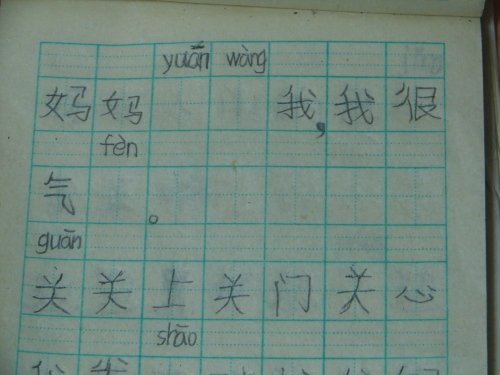 yuān wàng
妈妈我,我很
fèn
气。
guān
关关上关门关心
shāo